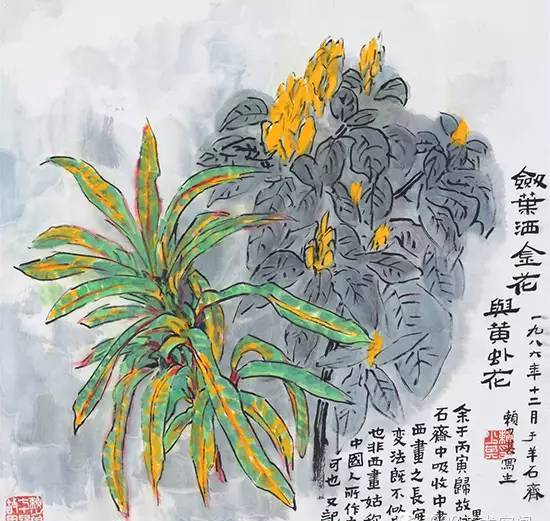 劔葉洒金花
與黄虾花
一九八六年十二月于羊石齋
賴寫生
余于丙寅歸故
石齋中吸收中畫
西畫之長寫
變法既不似
也非西畫姑
中國人所作
可也又記